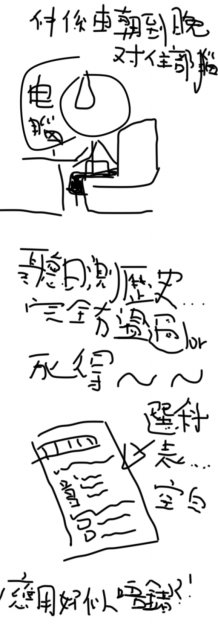 朝到晚
对住部腦
电
腦
聽日測歷史...
完全冇溫過lor
死得～～
選科
表...
空白
應用好似唔錯?!